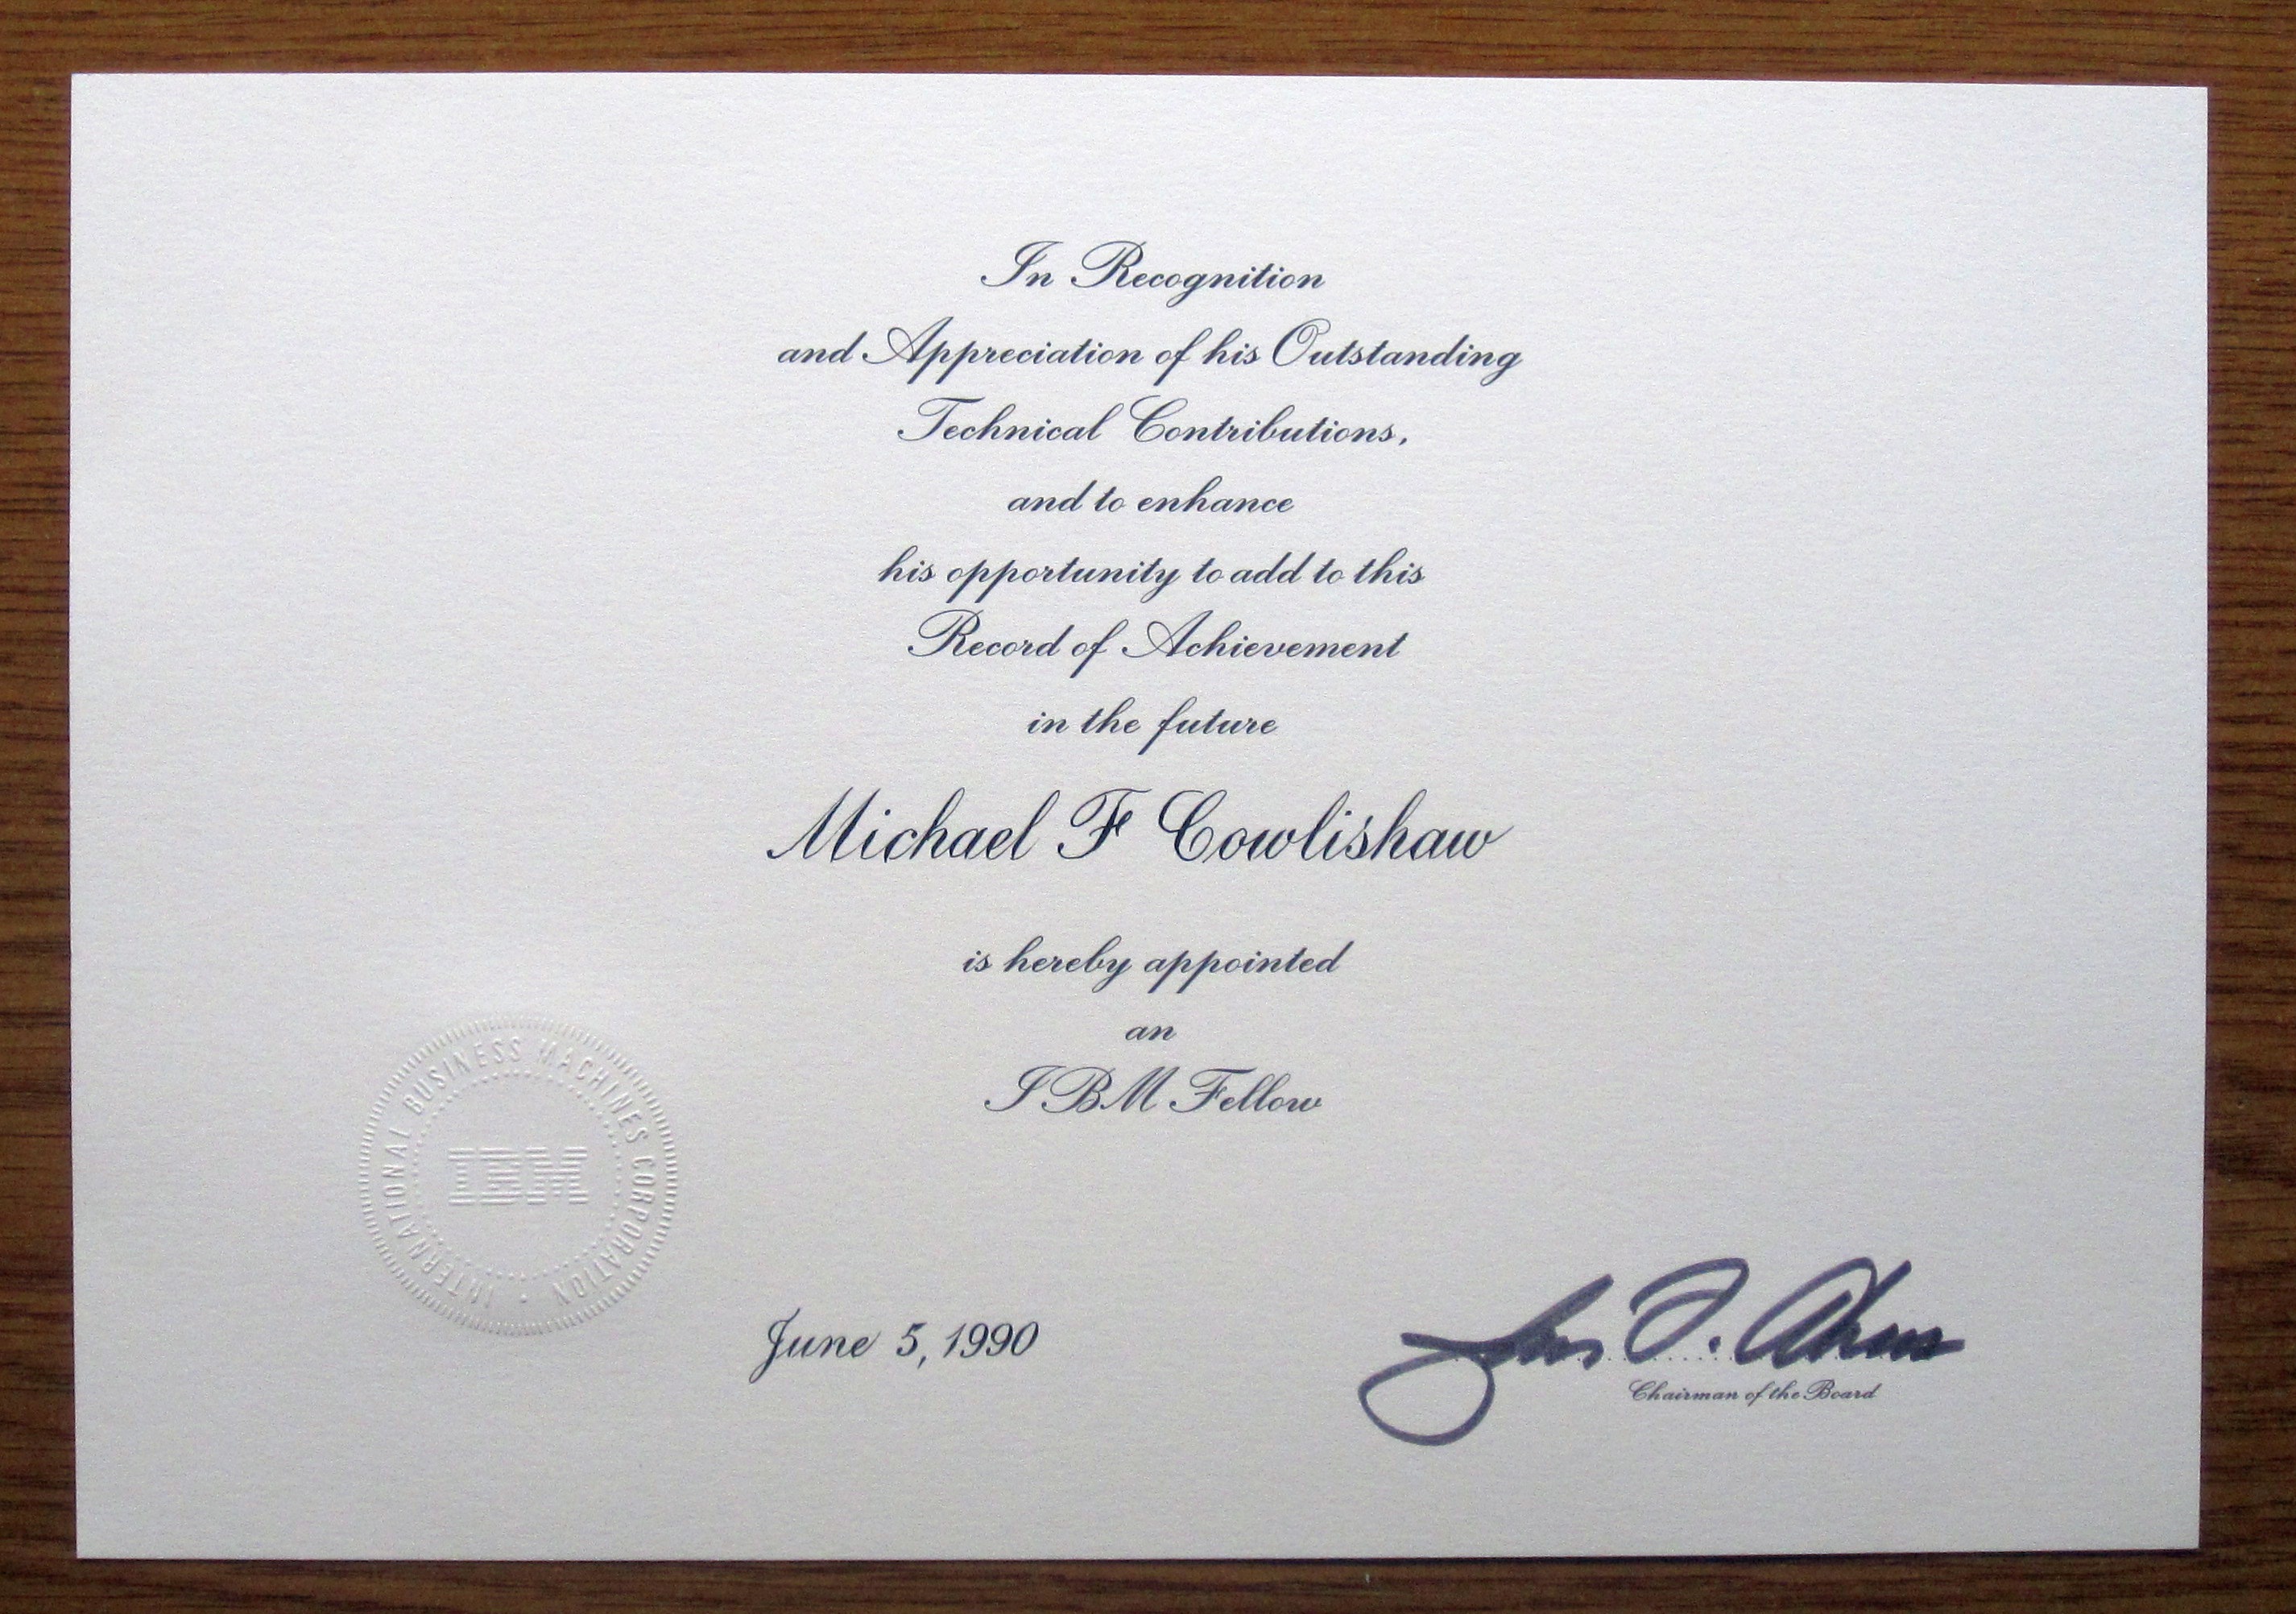 In Recognition
and Appreciation of his Outstanding
Technical Contributions,
and to enhance
his opportunity to add to this
Record of Achievement
in the future
Michael F Cowlishaw
is hereby appointed
an
IBM Fellow
INTERNATIONAL BUSINESS MACHINES CORPORATION
IBM
June 5, 1990
Chairman of the Board